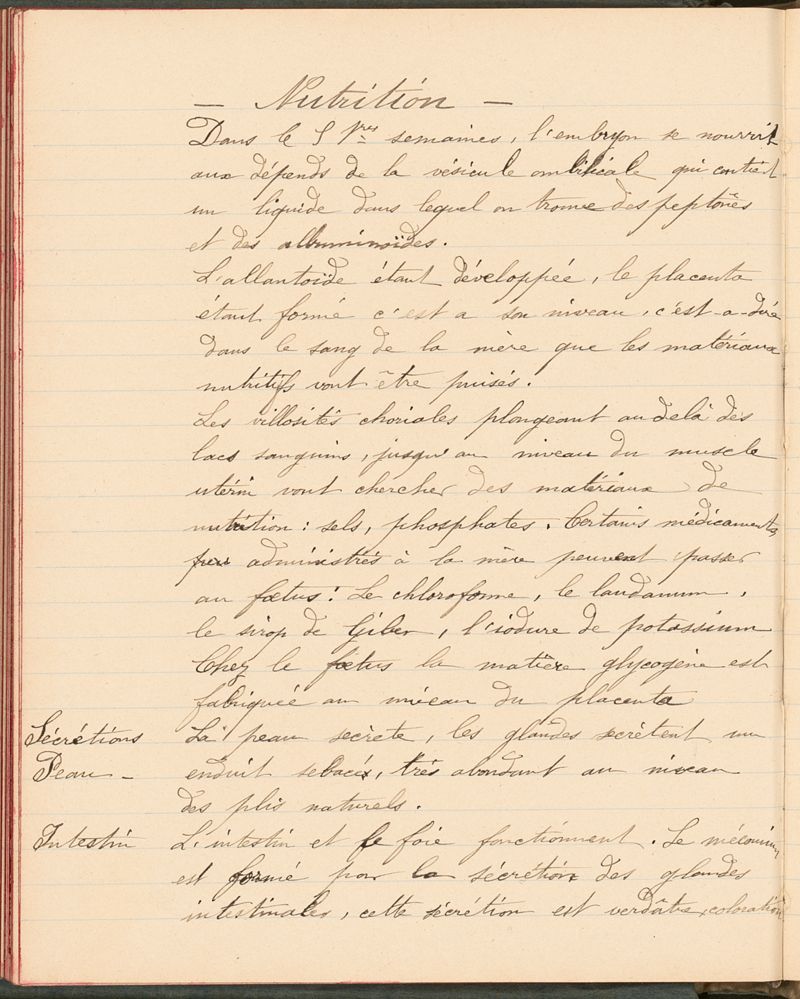 — Nutrition —
Dans le 5 1res semaines, l'embryon se nourrit
aux dépends de la vésicule ombilicale qui contient
un liquide dans lequel on trouve des peptones
et des albuminoïdes.
L'allantoïde étant développée, le placenta
étant formé c'est a son niveau, c'est-a-dire
dans le sang de la mère que les matériaux
nutritifs vont être puisés.
Les villosités choriales plongeant au delà des
lacs sanguins, jusqu'au niveau du muscle
utérin vont chercher des matériaux de
nutrition : sels, phosphates. Certains médicaments
administrés à la mère peuvent passer
au fœtus : Le chloroforme, le laudanum,
le sirop de Giber, l'iodure de potassium
Chez le fœtus la matière glycogène est
fabriquée au niveau du placenta
Sécrétions La peau secrète, les glandes secrètent un
Peau — enduit sebacé, très abondant au niveau
des plis naturels.
Intestin L'intestin et le foie fonctionnent. Le méconium
est formé par la sécrétion des glandes
intestinales, cette sécrétion est verdâtre, coloration